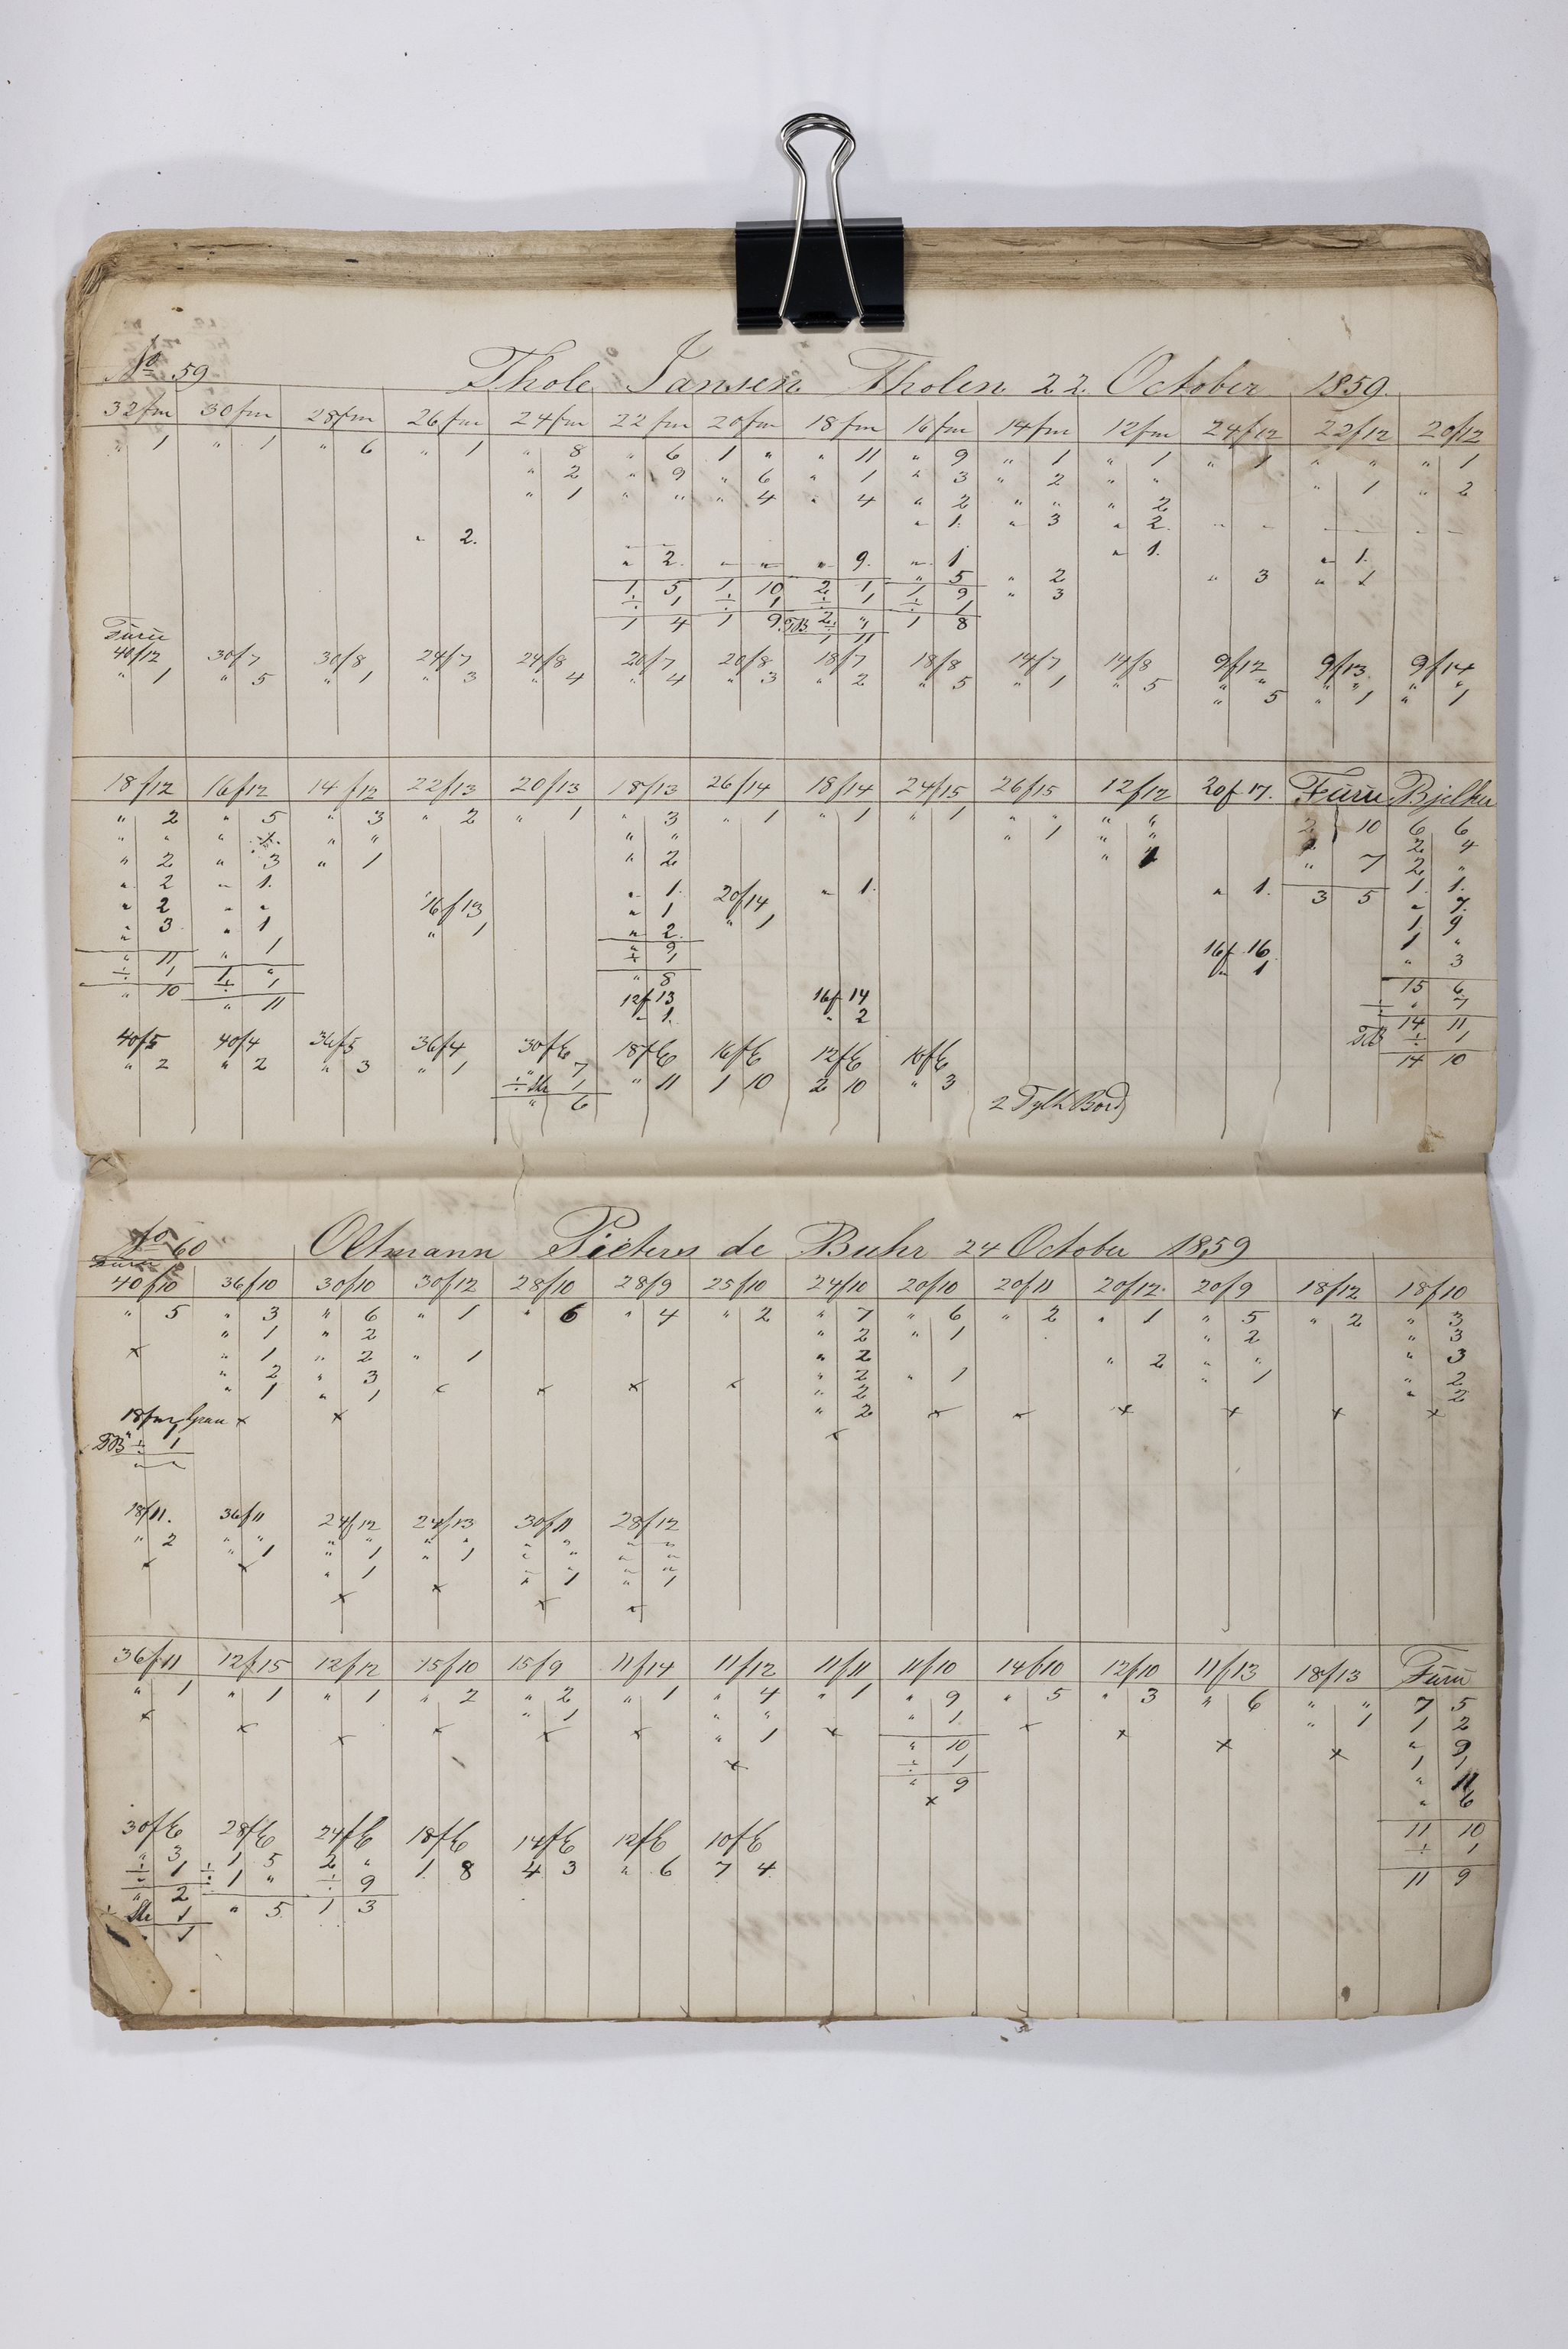 No 59 Thole Jansen Tholen 22 October 1859.
32fm 30fm 28fm 26fm 24fm 22fm 20fm 18fm 16fm 14fm 12fm 24f12 22f12 20f12
" 1 " 1 " 6 " 1 " 8 " 6 1 " " 11 " 9 " 1 " 1 " 1 " " " 1
" 2 " 9 " 6 " 1 " 3 " 2 " " " 1 " 2
" 1 " " " 4 " 4 " 2 " " " 2
" 1. " 3 " 2
" 2. " 1. " 1.
" 2. " " " 9. " 1
" 5 " 2 " 3 " 1
1 5 1 10 2 1 1 9 " 3
÷ 1 ÷ 1 ÷ 1 ÷ 1
1 4 1 9 2 " 1 8
1 11
Furu
40f12 30f7 30f8 24f7 24f8 20f7 20f8 18f7 18f8 14f7 14f8 9f12 9f13. 9f14
" 1 " 5 " 1 " 3 " 4 " 4 " 3 " 2 " 5 " 1 " 5 " " " " " "
" 5 " 1 " 1
18f12 16f12 14f12 22f13 20f13 18f13 26f14 18f14 24f15 26f15 12f12 20f17. Furu Bjelker
" 2 " 5 " 3 " 2 " 1 " 3 " 1 " 1 " 1 " " " " 2 10 6 6
" " " " " " " " 1 " " 2 4
" 2 " 3 " 1 " 2 " 1 " 7 2 "
" 2 " 1. " 1. 20f14 " 1. " 1. 3 5 1. 1.
" 2 " " 16f13 " 1 " 1 " 7.
" 3 " 1 " 1 " 2. 1 9
" 11 " 1 " 9 16f16 1 "
÷ 1 1 " ÷ 1 " 1 " 3
" 10 ÷ 1 " 8 15 6
" 11 12f13 16f14 ÷ " 7
" 1. " 2 14 11
÷ 1
14 10
40f5 40f4 36f5 36f4 30f6 18f6 16f6 12f6 10f6
" 2 " 2 " 3 " 1 " 7 " 11 1 10 2 10 " 3
÷ 1
" 6
2 Tylt Bord
No 60 Oltmann Pieters de Buhr 24 October 1859
Furu
40f10 36f10 30f10 30f12 28f10 28f9 25f10 24f10 20f10 20f11 20f12. 20f9 18f12 18f10
" 5 " 3 " 6 " 1 " 6 " 4 " 2 " 7 " 6 " 2 " 1 " 5 " 2 " 3
" 1 " 2 " 2 " 1 " 2 " 3
x " 1 " 2 " 1 " 2 " 2 " " " 3
" 2 " 3 " 2 " 1 " 1 " 2
" 1 " 1 x x x x " 2 " 2
18fm Gran x x " 2 x x x x x x
÷ 1 x
18f11. 36f11 24f12 24f13 30f11 28f12
" 2 " " " " " " " " " "
x " 1 " 1 " 1 " " " "
x " 1 x " 1 " 1
x x x
36f11 12f15 12f12 15f10 15f9 11f14 11f12 11f11 11f10 14f10 12f10 11f13 18f13 Furu
" 1 " 1 " 1 " 2 " 2 " 1 " 4 " 1 " 9 " 5 " 3 " 6 " " 7 5
x x x x " 1 x " " x " 1. x x x " 1 1 2
x " 1 " 10 x " 9
x ÷ 1 1 1
" 9 " 11
x " 6
11 10
÷ 1
11 9
30f6 28f6 24f6 18f6 14f6 12f6 10f6
" 3 1 5 2 " 1 8 4 3 " 6 7 4
÷ 1 ÷ 1 " ÷ 9
" 2 " 5 1 3
1
" 1